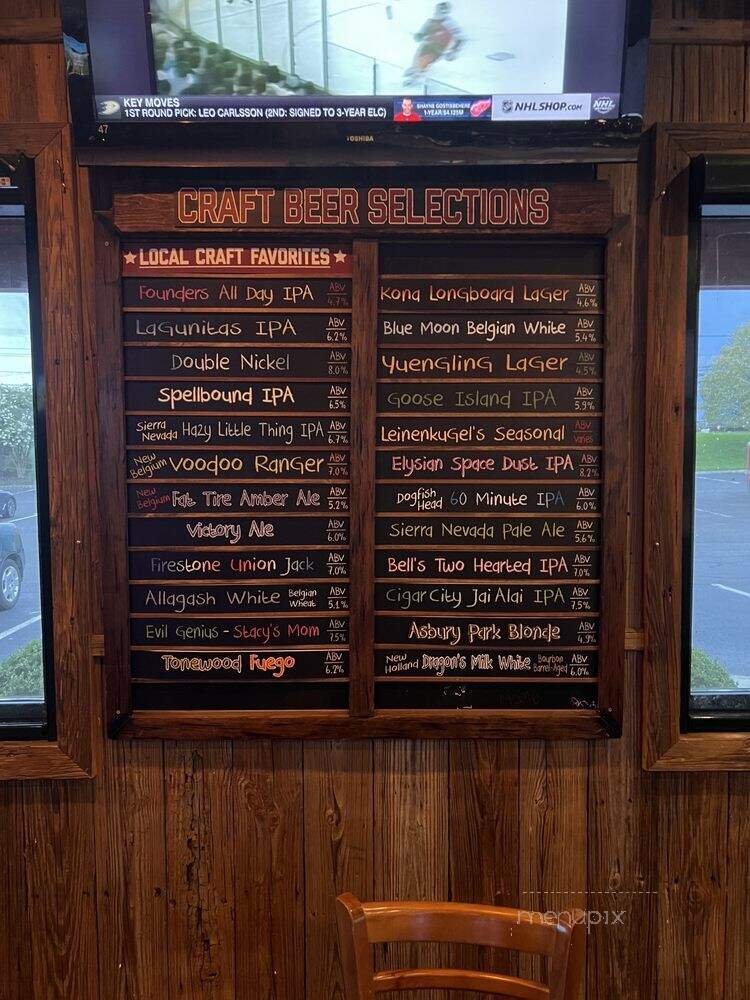 KEY MOVES
1ST ROUND PICK: LEO CARLSSON (2ND: SIGNED TO 3-YEAR ELC)
SHAYNE GOSTISBEHERE
1-YEAR/$4.125M
NHLSHOP.COM
NHL
47
TOSHIBA
CRAFT BEER SELECTIONS
LOCAL CRAFT FAVORITES
Founders All Day IPA ABV 4.7%
Lagunitas IPA ABV 6.2%
Double Nickel ABV 8.0%
Spellbound IPA ABV 6.5%
Sierra Nevada Hazy Little Thing IPA ABV 6.7%
New Belgium Voodoo Ranger ABV 7.0%
New Belgium Fat Tire Amber Ale ABV 5.2%
Victory Ale ABV 6.0%
Firestone Union Jack ABV 7.0%
Allagash White Belgian Wheat ABV 5.1%
Evil Genius - Stacy's Mom ABV 7.5%
Tonewood Fuego ABV 6.2%
Kona Longboard Lager ABV 4.6%
Blue Moon Belgian White ABV 5.4%
Yuengling Lager ABV 4.5%
Goose Island IPA ABV 5.9%
Leinenkugel's Seasonal ABV Varies
Elysian Space Dust IPA ABV 8.2%
Dogfish Head 60 Minute IPA ABV 6.0%
Sierra Nevada Pale Ale ABV 5.6%
Bell's Two Hearted IPA ABV 7.0%
Cigar City Jai Alai IPA ABV 7.5%
Asbury Park Blonde ABV 4.9%
New Holland Dragon's Milk White Bourbon Barrel-Aged ABV 6.0%
menupix